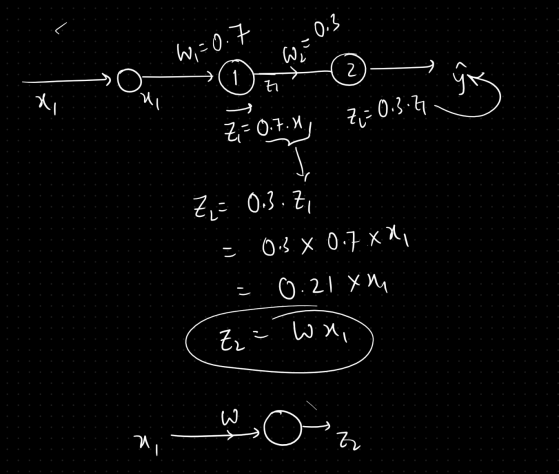 W₁=0.7 W₂=0.3
x₁ x₁ 1 z₁ 2 ŷ
z₁=0.7.x₁ z₂=0.3.z₁
z₂= 0.3.z₁
= 0.3 × 0.7 × x₁
= 0.21 × x₁
z₂ = W x₁
x₁ W z₂